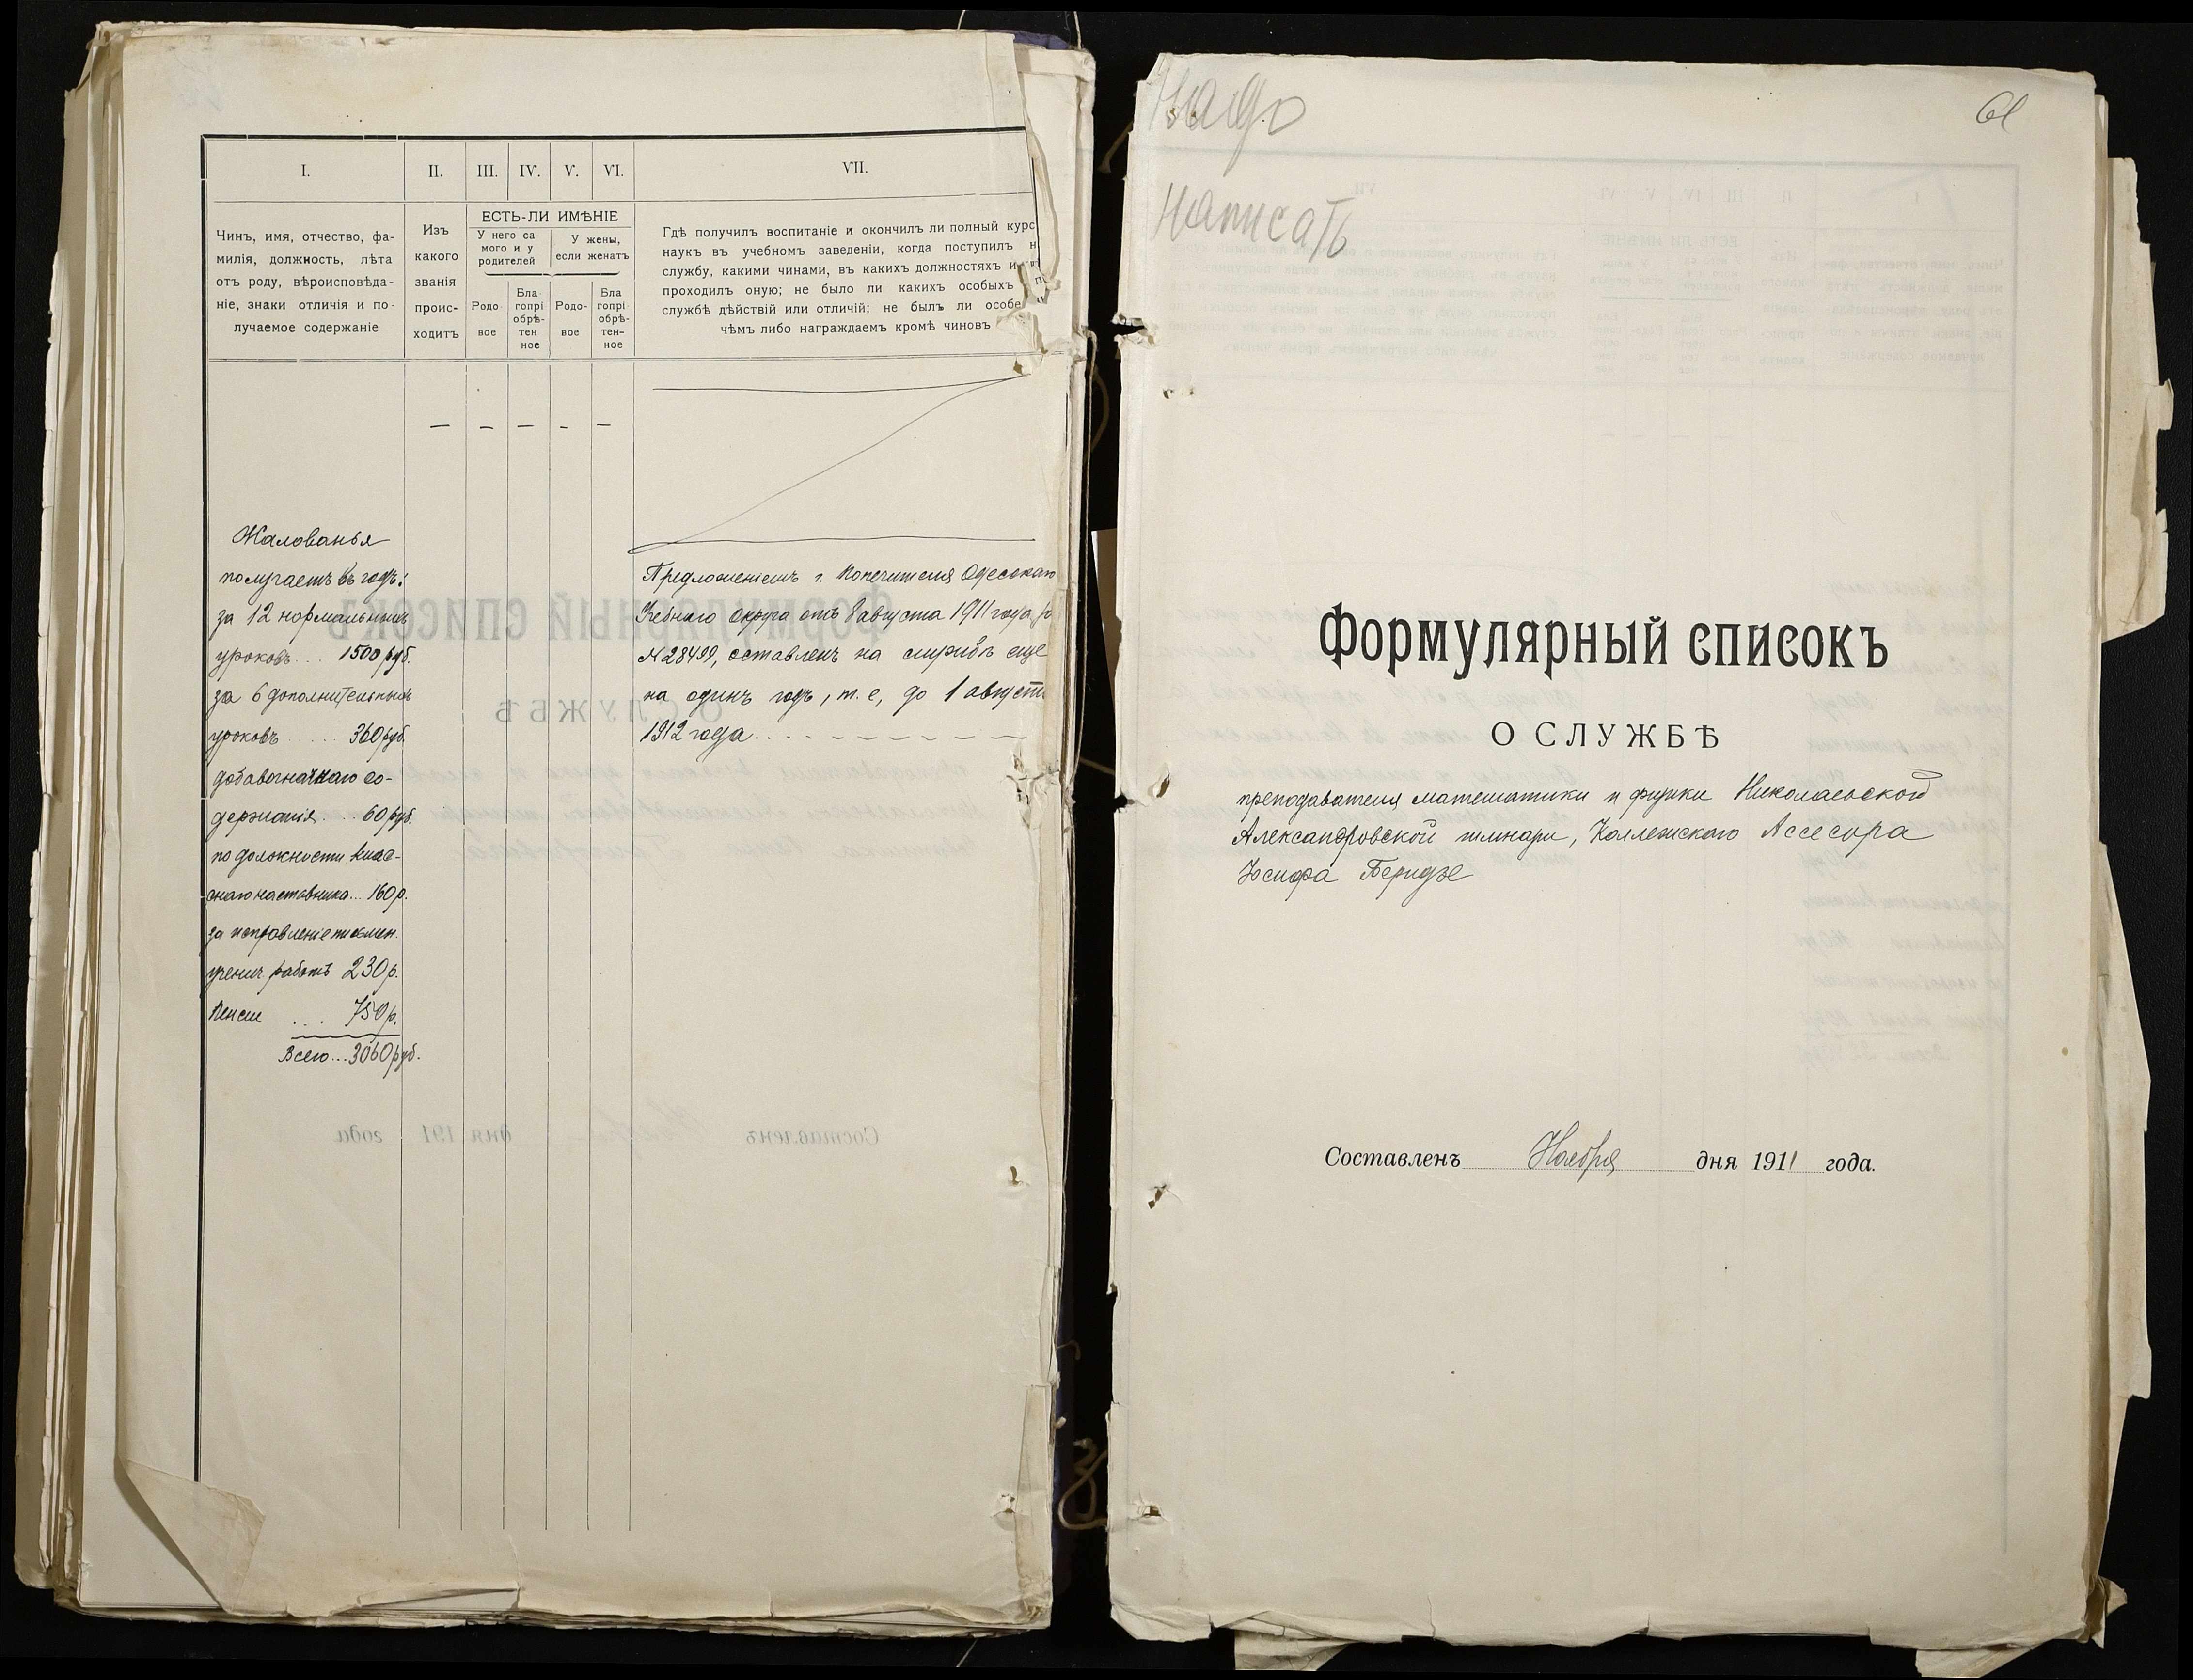 I.
II.
III.
IV.
V.
VI.
VII.
Чинъ, имя, отчество, фа-
милія, должность, лѣта
отъ роду, вѣроисповѣда-
ніе, знаки отличія и по-
лучаемое содержаніе
Изъ
какого
званія
проис-
ходитъ
ЕСТЬ-ЛИ ИМѢНІЕ
У него са
мого и у
родителей
У жены,
если женатъ
Родо-
вое
Бла
гопрі
обрѣ-
тен
ное
Родо-
вое
Бла
гопрі
обрѣ-
тен-
ное
Гдѣ получилъ воспитаніе и окончилъ ли полный курс
наукъ въ учебномъ заведеніи, когда поступилъ н
службу, какими чинами, въ какихъ должностяхъ и
проходилъ оную; не было ли какихъ особыхъ п
службѣ дѣйствій или отличій; не былъ ли особе
чѣмъ либо награждаемъ кромѣ чиновъ
— — — - —
Жалованья
получаетъ въ годъ:
за 12 нормальныхъ
уроковъ... 1500 руб.
за 6 дополнительныхъ
уроковъ ..... 360 руб.
добавочнаго со-
держанія.... 60 руб.
по должности клас-
снаго наставника... 160 р.
за исправленіе письмен.
ученич. работъ 230 р.
Пенсіи .... 750 р.
Всего... 3060 руб.
Предложеніемъ г. Попечителя Одесскаго
Учебнаго Округа отъ 8 августа 1911 года, за
№ 28499, оставленъ на службѣ еще
на одинъ годъ, т. е, до 1 августа
1912 года.
Надо
написать
61
Формулярный списокъ
О СЛУЖБѢ
преподавателя математики и физики Николаевской
Александровской гимназіи, Коллежскаго Ассесора
Іосифа Беридзе
Составленъ Ноября дня 1911 года.